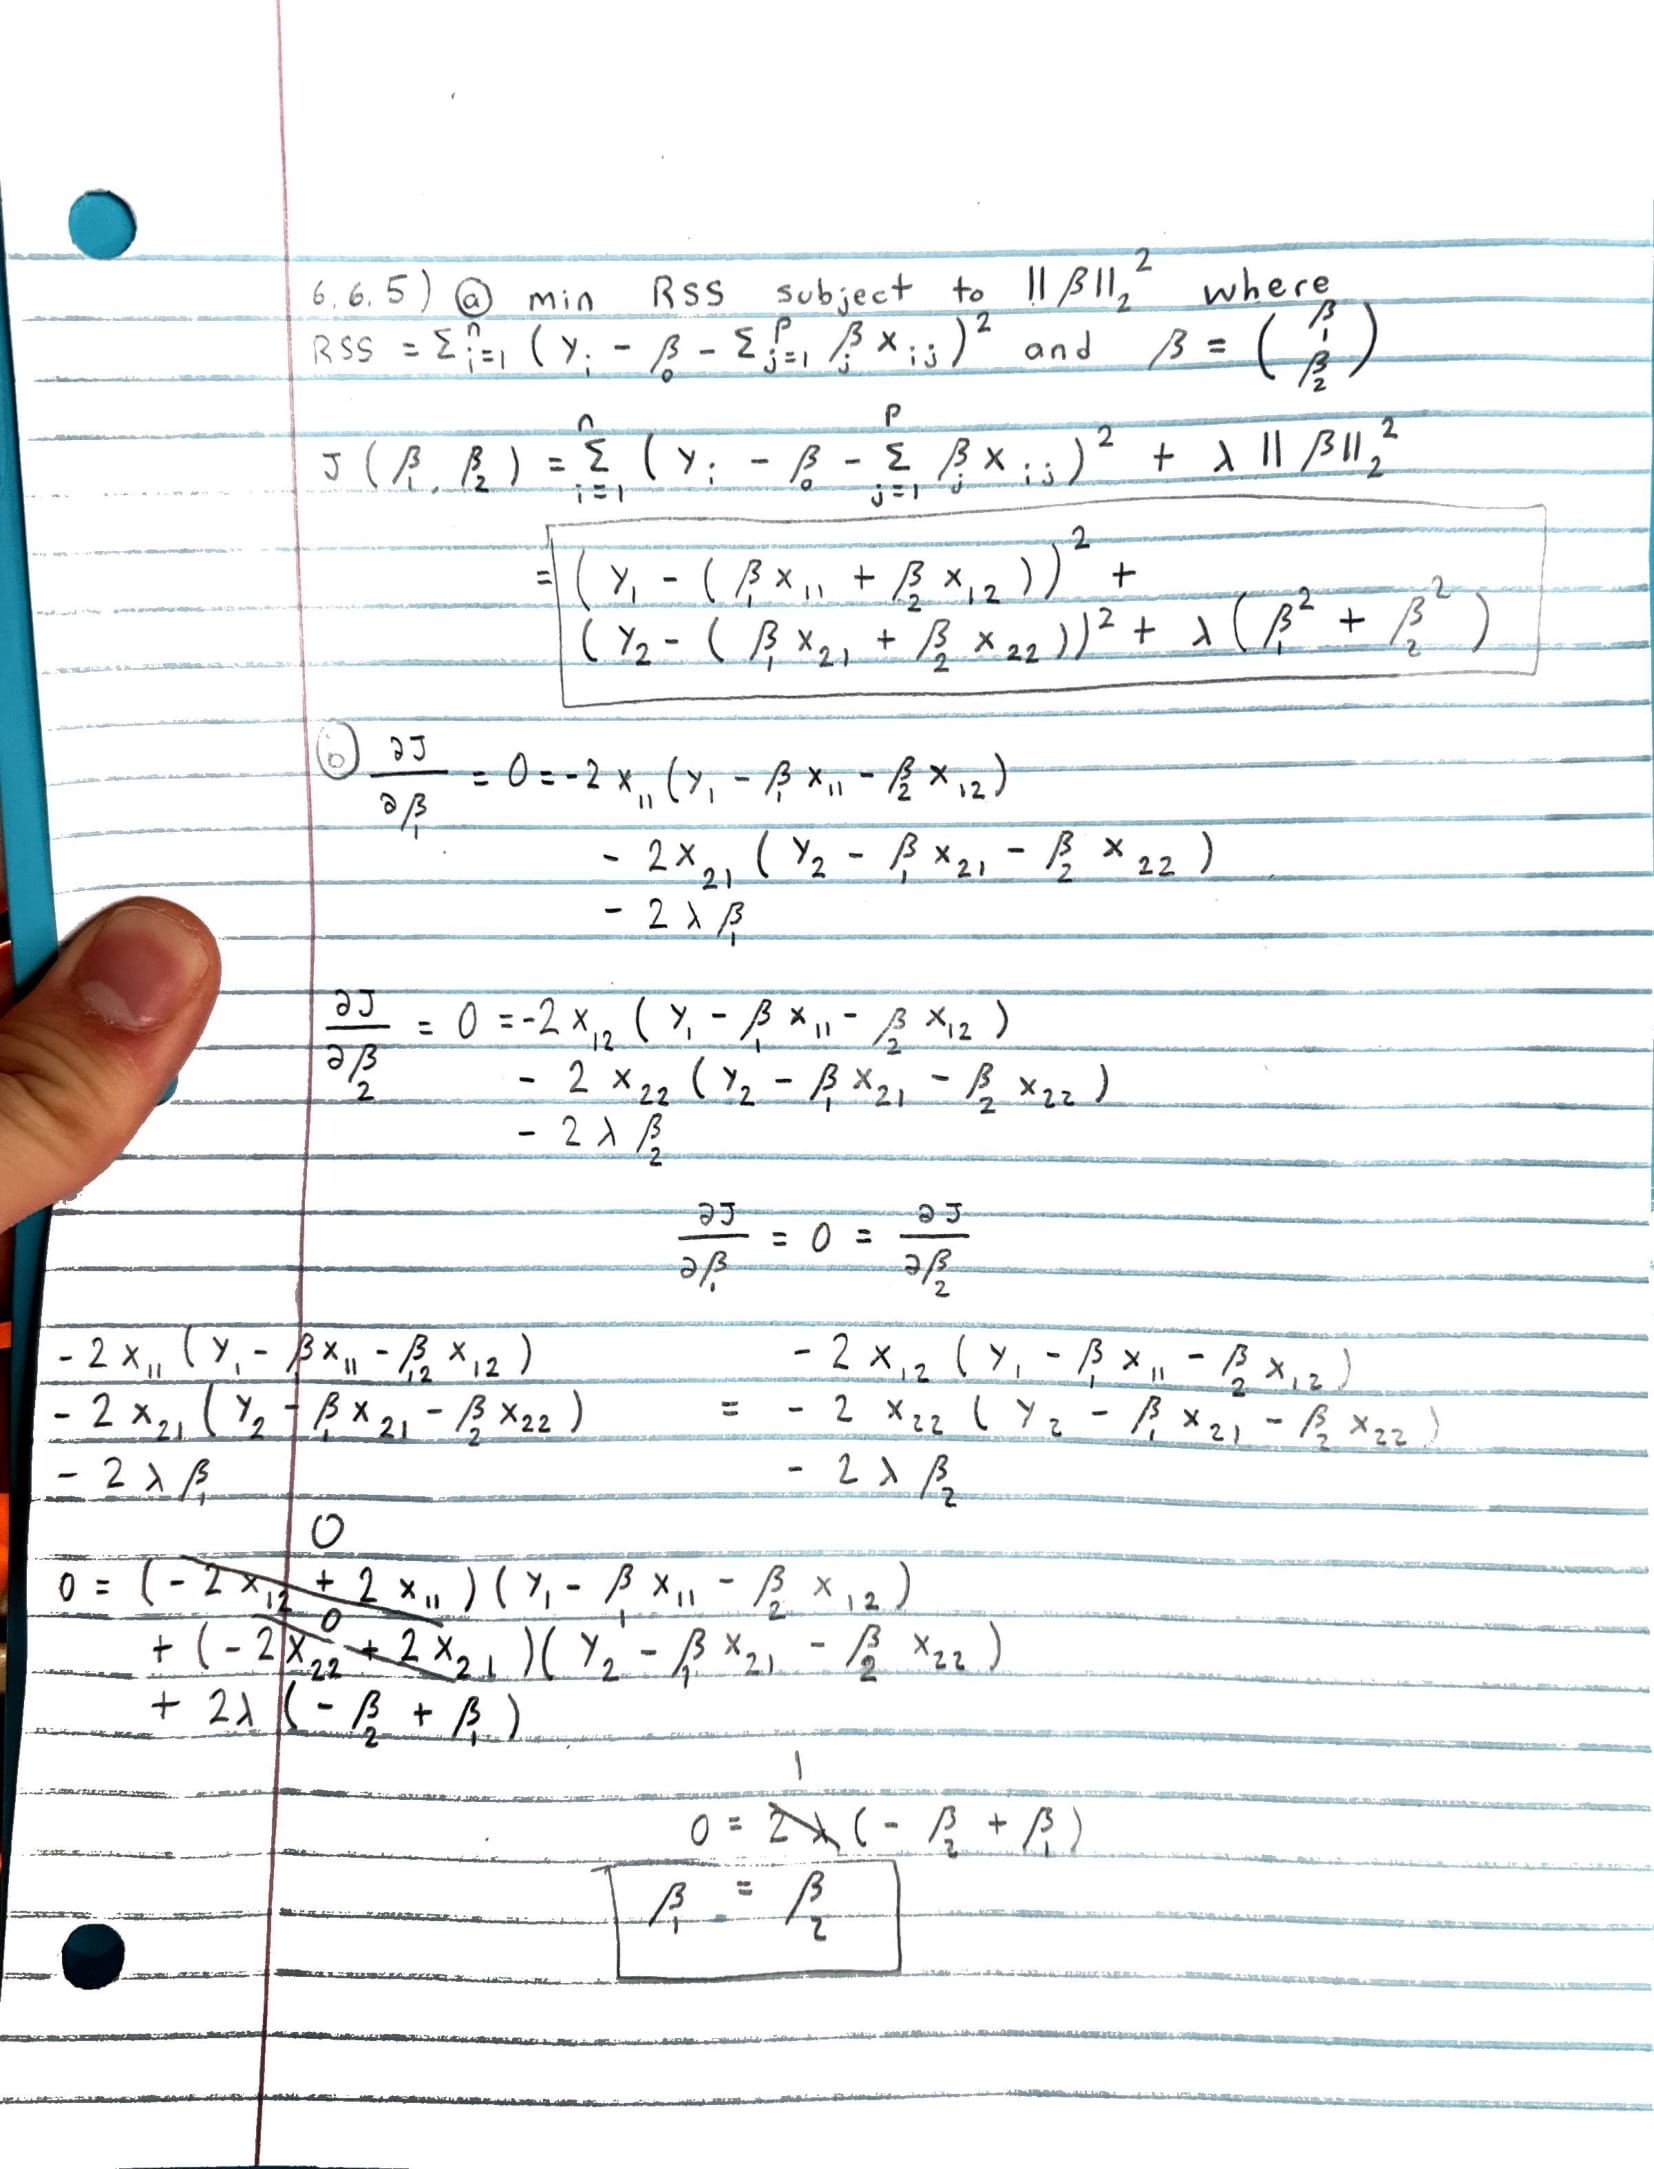 6.6.5) ⓐ min RSS subject to ||β||₂² where
RSS = Σᵢ₌₁ⁿ (yᵢ - β₀ - Σⱼ₌₁ᵖ βⱼ xᵢⱼ)² and β = (β₁ β₂)
J(β₁, β₂) = Σᵢ₌₁ⁿ (yᵢ - β₀ - Σⱼ₌₁ᵖ βⱼ xᵢⱼ)² + λ ||β||₂²
= (y₁ - (β₁ x₁₁ + β₂ x₁₂))² +
(y₂ - (β₁ x₂₁ + β₂ x₂₂))² + λ(β₁² + β₂²)
ⓑ ∂J/∂β₁ = 0 = -2 x₁₁ (y₁ - β₁ x₁₁ - β₂ x₁₂)
- 2x₂₁ (y₂ - β₁ x₂₁ - β₂ x₂₂)
- 2 λ β₁
∂J/∂β₂ = 0 = -2 x₁₂ (y₁ - β₁ x₁₁ - β₂ x₁₂)
- 2 x₂₂ (y₂ - β₁ x₂₁ - β₂ x₂₂)
- 2 λ β₂
∂J/∂β₁ = 0 = ∂J/∂β₂
- 2 x₁₁ (y₁ - β₁ x₁₁ - β₁₂ x₁₂) - 2 x₁₂ (y₁ - β₁ x₁₁ - β₂ x₁₂)
- 2 x₂₁ (y₂ - β₁ x₂₁ - β₂ x₂₂) = - 2 x₂₂ (y₂ - β₁ x₂₁ - β₂ x₂₂)
- 2 λ β₁ - 2 λ β₂
0
0 = (- 2 x₁₂ + 2 x₁₁)(y₁ - β₁ x₁₁ - β₂ x₁₂)
0
+ (- 2x₂₂ + 2x₂₁)(y₂ - β₁ x₂₁ - β₂ x₂₂)
+ 2λ (- β₂ + β₁)
1
0 = 2λ (- β₂ + β₁)
β₁ = β₂